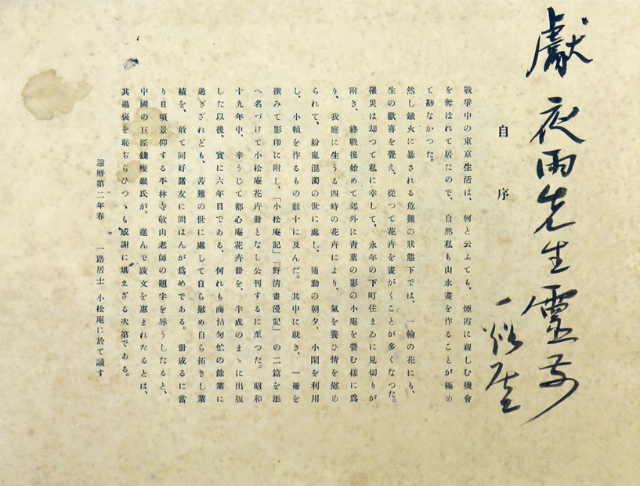 獻 夜雨先生靈前
一路生
自序
戰爭中の東京生活は、何と云ふても、煙霞に親しむ機會
を奪はれて居たので、自然私も山水畫を作ることが極め
て尠なかつた。
然し銃火に暴される危難の狀態下では、一輪の花にも、
生の歡喜を覺え、從つて花卉を畫がくことが多くなつた。
罹災は却つて私に幸して、永年の下町住まゐに見切りが
附き、終戰後始めて郊外に靑葉の影の小庵を營む樣に爲
り、我庭に生うる四時の花卉により、氣を養ひ情を慰め
られて、紛亂混濁の世に處し、通勤の朝夕、小閑を利用
し、小幀を作るもの數十に及んだ。其中に就き、一册を
撰みて影印に附し、「小松庵記」「野清畫漫記」の二篇を添
へ名づけて小松庵花卉册となし公刊するに至つた。昭和
十九年中、辛うじて都心庵花卉册を、半成のまゝに出版
した以後、實に六年目である。何れも商估匆忙の餘業に
過ぎざれども、苦難の世に處して自ら慰め自ら拓きし業
績を、敢て同好諸友に問はんが爲めである。册成るに當
り日頃景仰する平林寺敬山老師の題字を辱うしたると、
中國の巨匠錢瘦鐵氏が、進んで跋文を惠まれたるとは、
其過褒を恥ぢらひつゝも感謝に堪えざる次第である。
還曆第二年春　一路居士 小松庵に於て識す